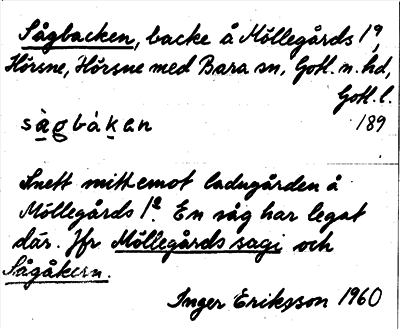 Sågbacken, backe å Möllegårds 1⁹,
Hörsne, Hörsne med Bara sn, Gotl. n. hd,
Gotl. l.
sàgbákan 189
Snett mitt emot ladugården å
Möllegårds 1⁹. En såg har legat
där. Jfr Möllegårds sagi och
Sågåkern.
Inger Eriksson 1960